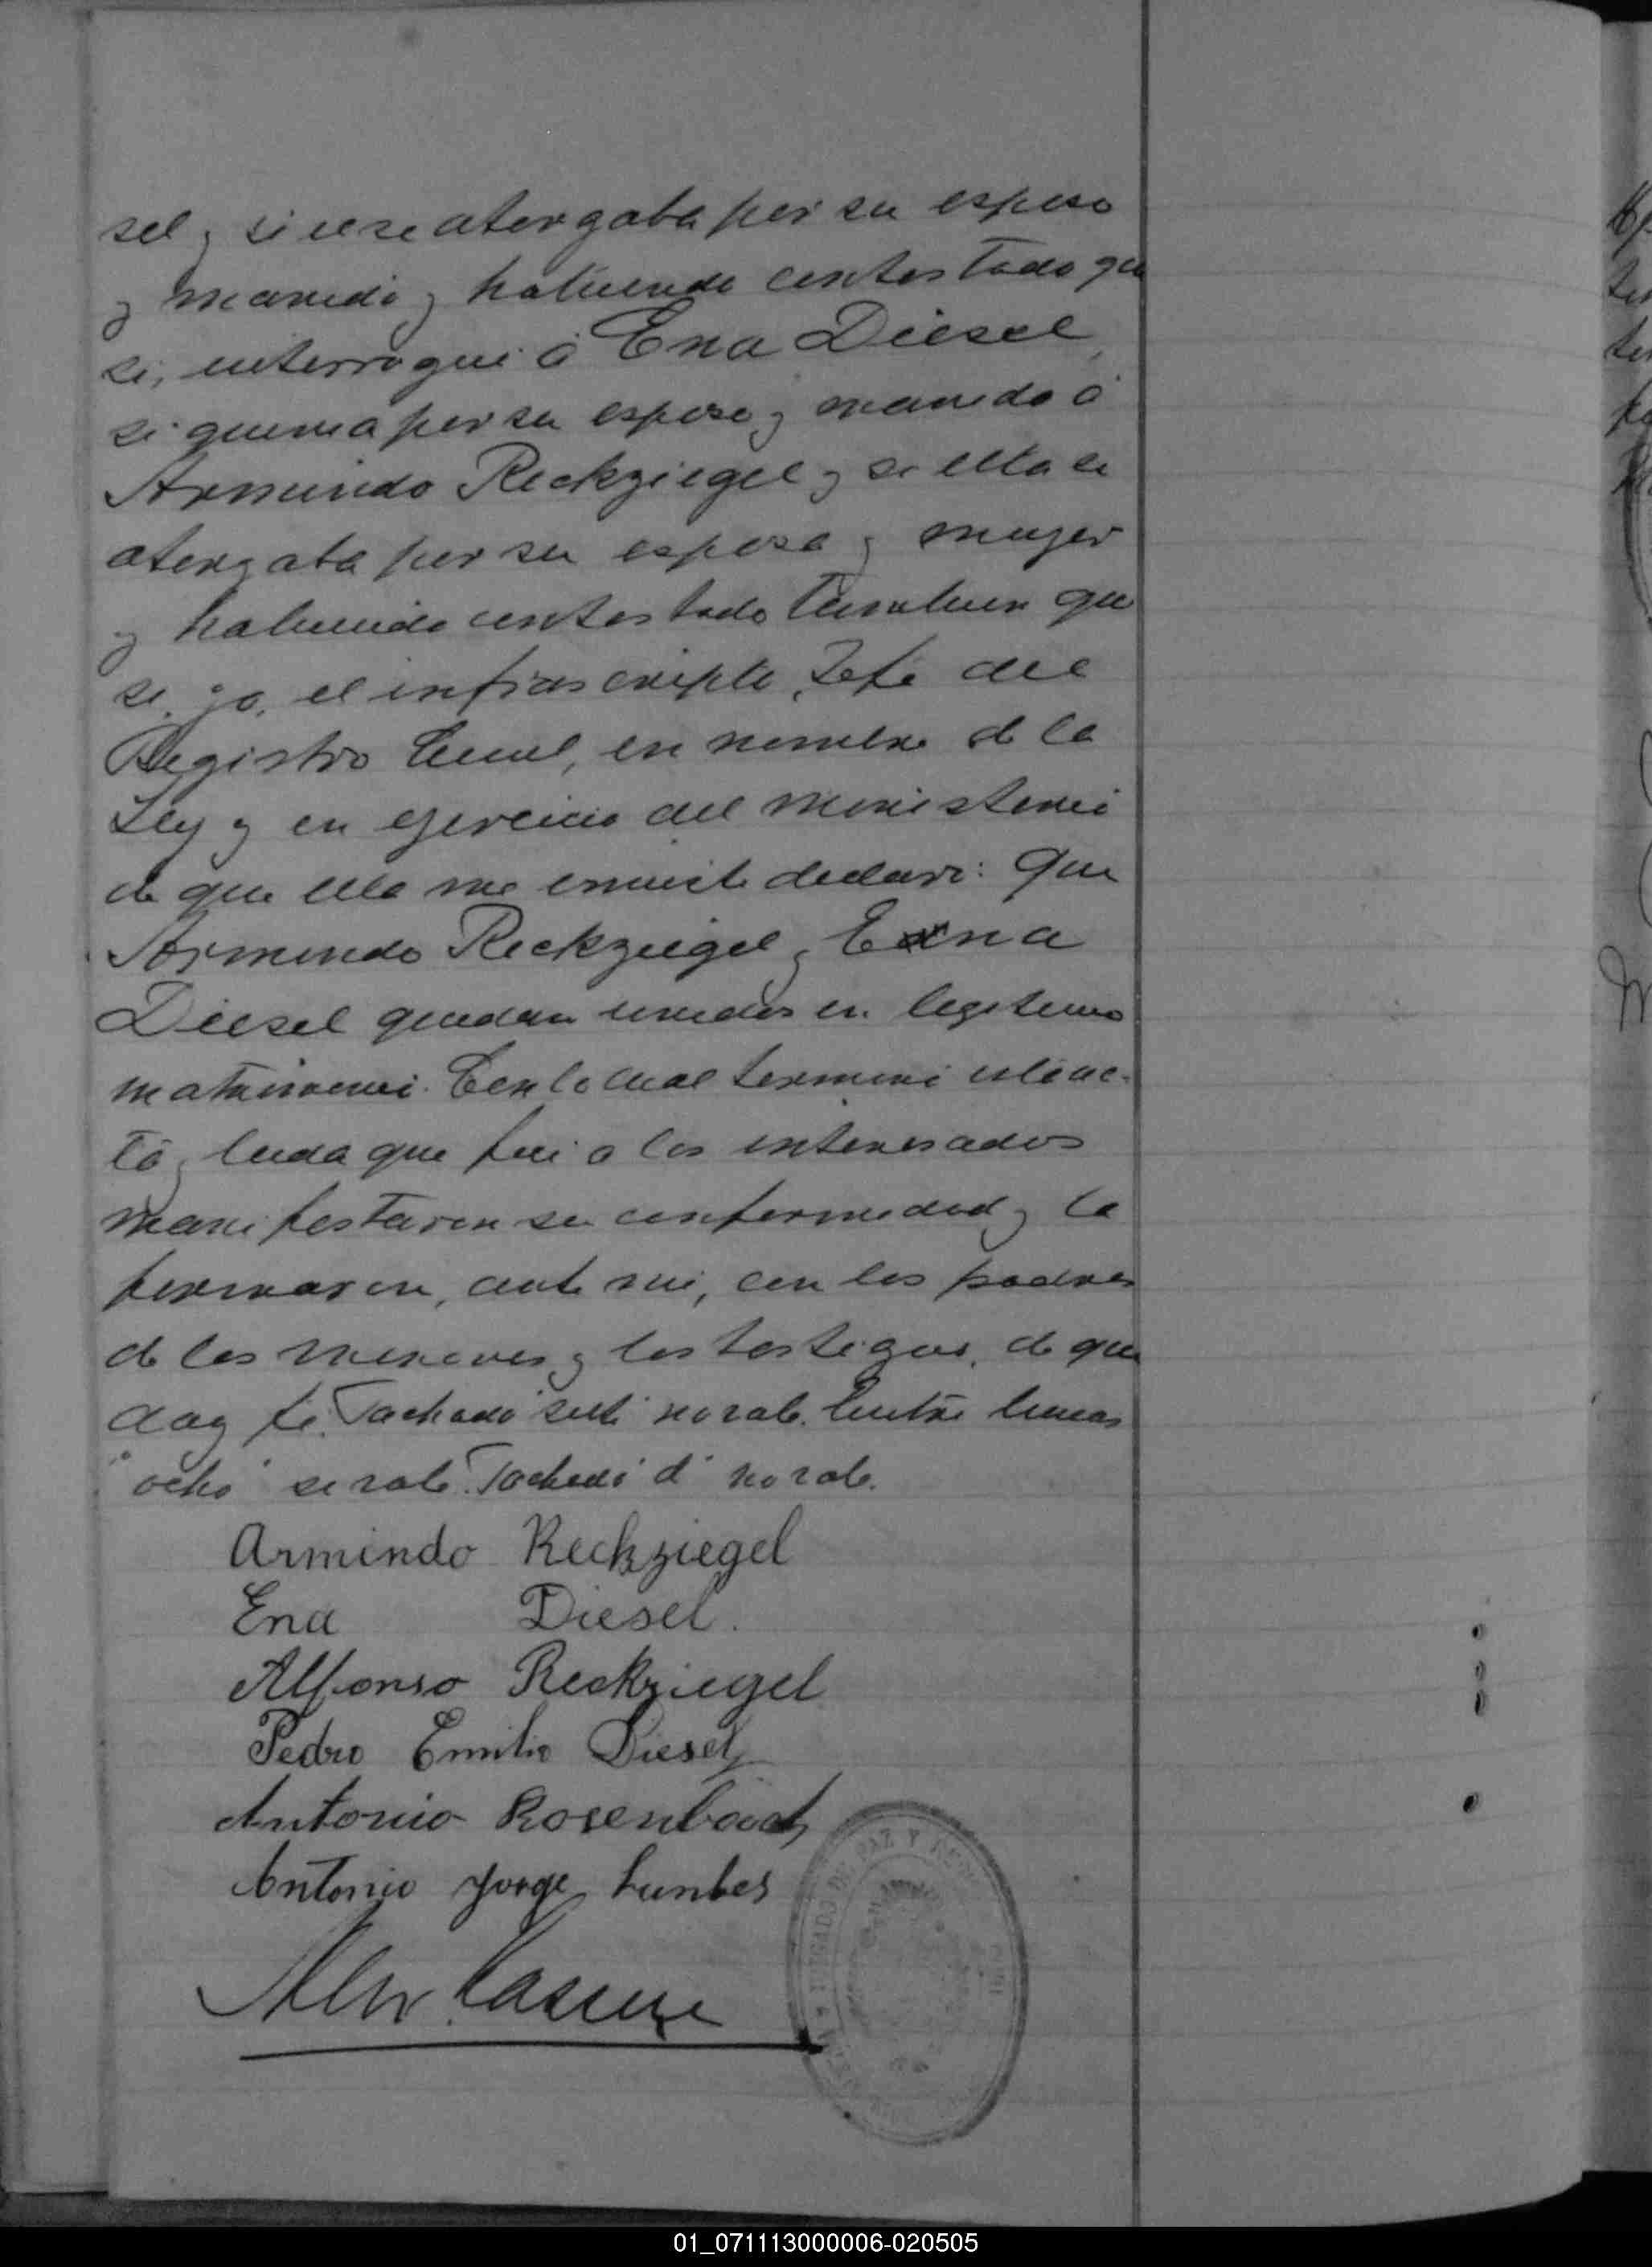 sel y si se otorgaba por su esposo
y marido y habiendo contestado que
si, interrogué á Ena Diesel,
si queria por su esposo y marido á
Armindo Reckziegel y si ella se
otorgaba por su esposa y mujer
y habiendo contestado tambien que
si, yo, el infrascripto, Jefe del
Registro Civil, en nombre de la
Ley y en ejercicio del ministerio
de que ella me inviste declaré: Que
Armindo Reckziegel y Ena
Diesel quedan unidos en legitimo
matrimonio. Con lo cual terminó el ac-
to y leida que fué a los interesados
manifestaron su conformidad y la
firmaron, ante mi, con los padres
de los menores y los testigos, de que
doy fé. Tachado no vale. Entre lineas
"ocho" si vale. Tachado "d" no vale.
Armindo Reckziegel
Ena Diesel.
Alfonso Reckziegel
Pedro Emilio Diesel
Antonio Rosenbach
Antonio Jorge
JUZGADO DE PAZ Y
01_071113000006-020505